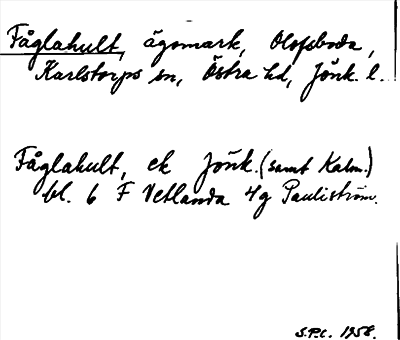 Fåglahult, ägomark, Olofsboda,
Karlstorps sn, Östra hd, Jönk. l.
Fåglahult, ek Jönk. (samt Kalm.)
bl. 6 F Vetlanda 4g Pauliström.
S.P.L. 1958.